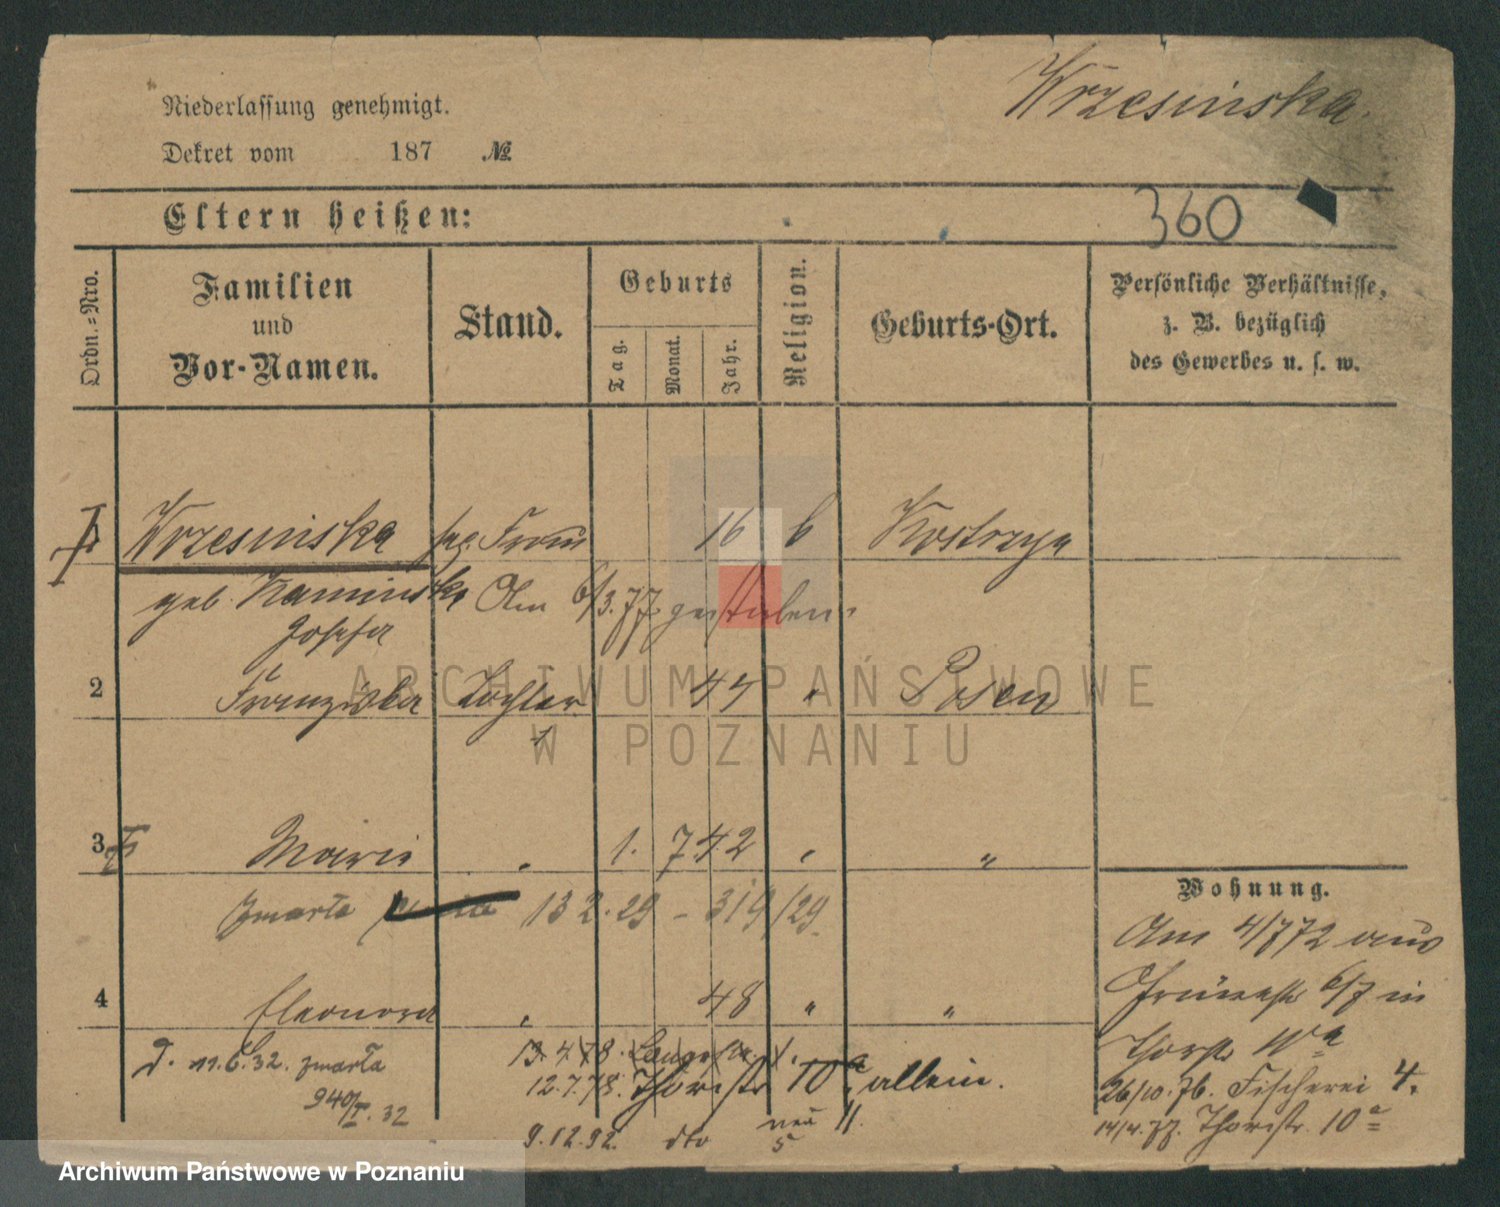 Wrzesinska.
Niederlassung genehmigt.
Dekret vom 187 №
Eltern heißen:
360
Ordn.=Nro.
Familien
und
Vor-Namen.
Stand.
Geburts
Tag.
Monat.
Jahr.
Religion.
Geburts-Ort.
Persönliche Verhältnisse,
z. B. bezüglich
des Gewerbes u. s. w.
Wrzesinska Frau 16 k Kostrzyn
geb. Kaminska Am 6/3.77 gestorben.
Josefa
2 Franziska Tochter 45 " Posen
3 Marie " 1. 7 42 " "
zmarła 13 2. 29 - 319/29
4 Eleonora " 48 " "
D. 11.6.32. zmarła
940/I. 32
13.4.78. Langestr.
12.7.78. Thorstr 10a allein.
9.12.92. dto neu 11.
5
Wohnung.
Am 4/7 72 aus
6/7 in
Thorstr 10a
26/10.76. Fischerei 4.
14/4.77. Thorstr. 10a
ARCHIWUM PAŃSTWOWE
W POZNANIU
Archiwum Państwowe w Poznaniu